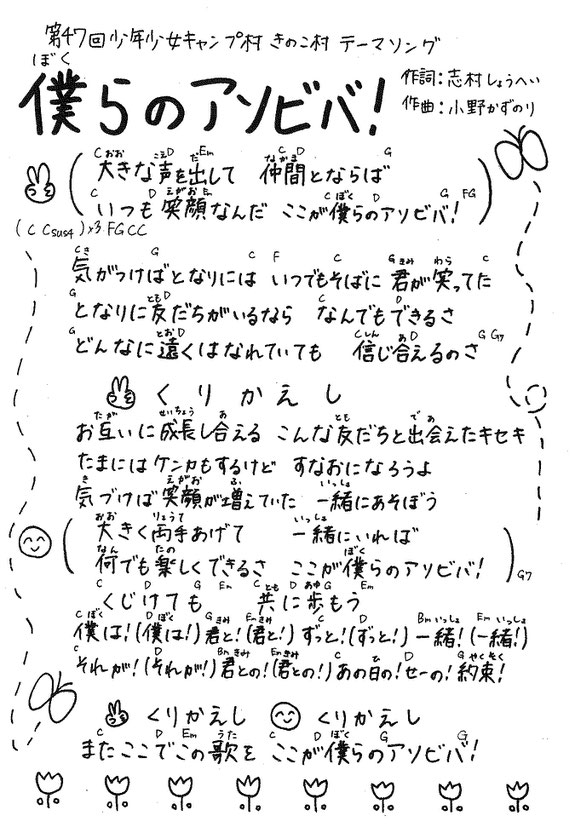 第47回少年少女キャンプ村 きのこ村 テーマソング
ぼく
僕らのアソビバ!
作詞:志村しょうへい
作曲:小野かずのり
C おお こえ D だ Em なかま C D G
(大きな声を出して 仲間とならば
C D えがお Em C ぼく D G FG
いつも笑顔なんだ ここが僕らのアソビバ!)
(C Csus4)×3 FGCC
C き G C F C G きみ わら C
気がつけばとなりには いつでもそばに 君が笑ってた
G とも D C D
となりに友だちがいるなら なんでもできるさ
G とお D C しん あ D G G7
どんなに遠くはなれていても 信じ合えるのさ
くりかえし
たが せいちょう あ とも で あ
お互いに成長し合える こんな友だちと出会えたキセキ
たまにはケンカもするけど すなおになろうよ
き えがお ふ いっしょ
気づけば笑顔が増えていた 一緒にあそぼう
おお りょうて いっしょ
(大きく両手あげて 一緒にいれば
なん たの ぼく
何でも楽しくできるさ ここが僕らのアソビバ!)
G7
C D G Em C とも D あゆ G Em
くじけても 共に歩もう
C ぼく D G きみ Em きみ C D Bm いっしょ Em いっしょ
僕は!(僕は!)君と!(君と!)ずっと!(ずっと!)一緒!(一緒!)
C D Bm きみ Em きみ C ひ D G やくそく
それが!(それが!)君との!(君との!)あの日の!せーの!約束!
くりかえし くりかえし
C D Em うた C D ぼく G G
またここでこの歌を ここが僕らのアソビバ!